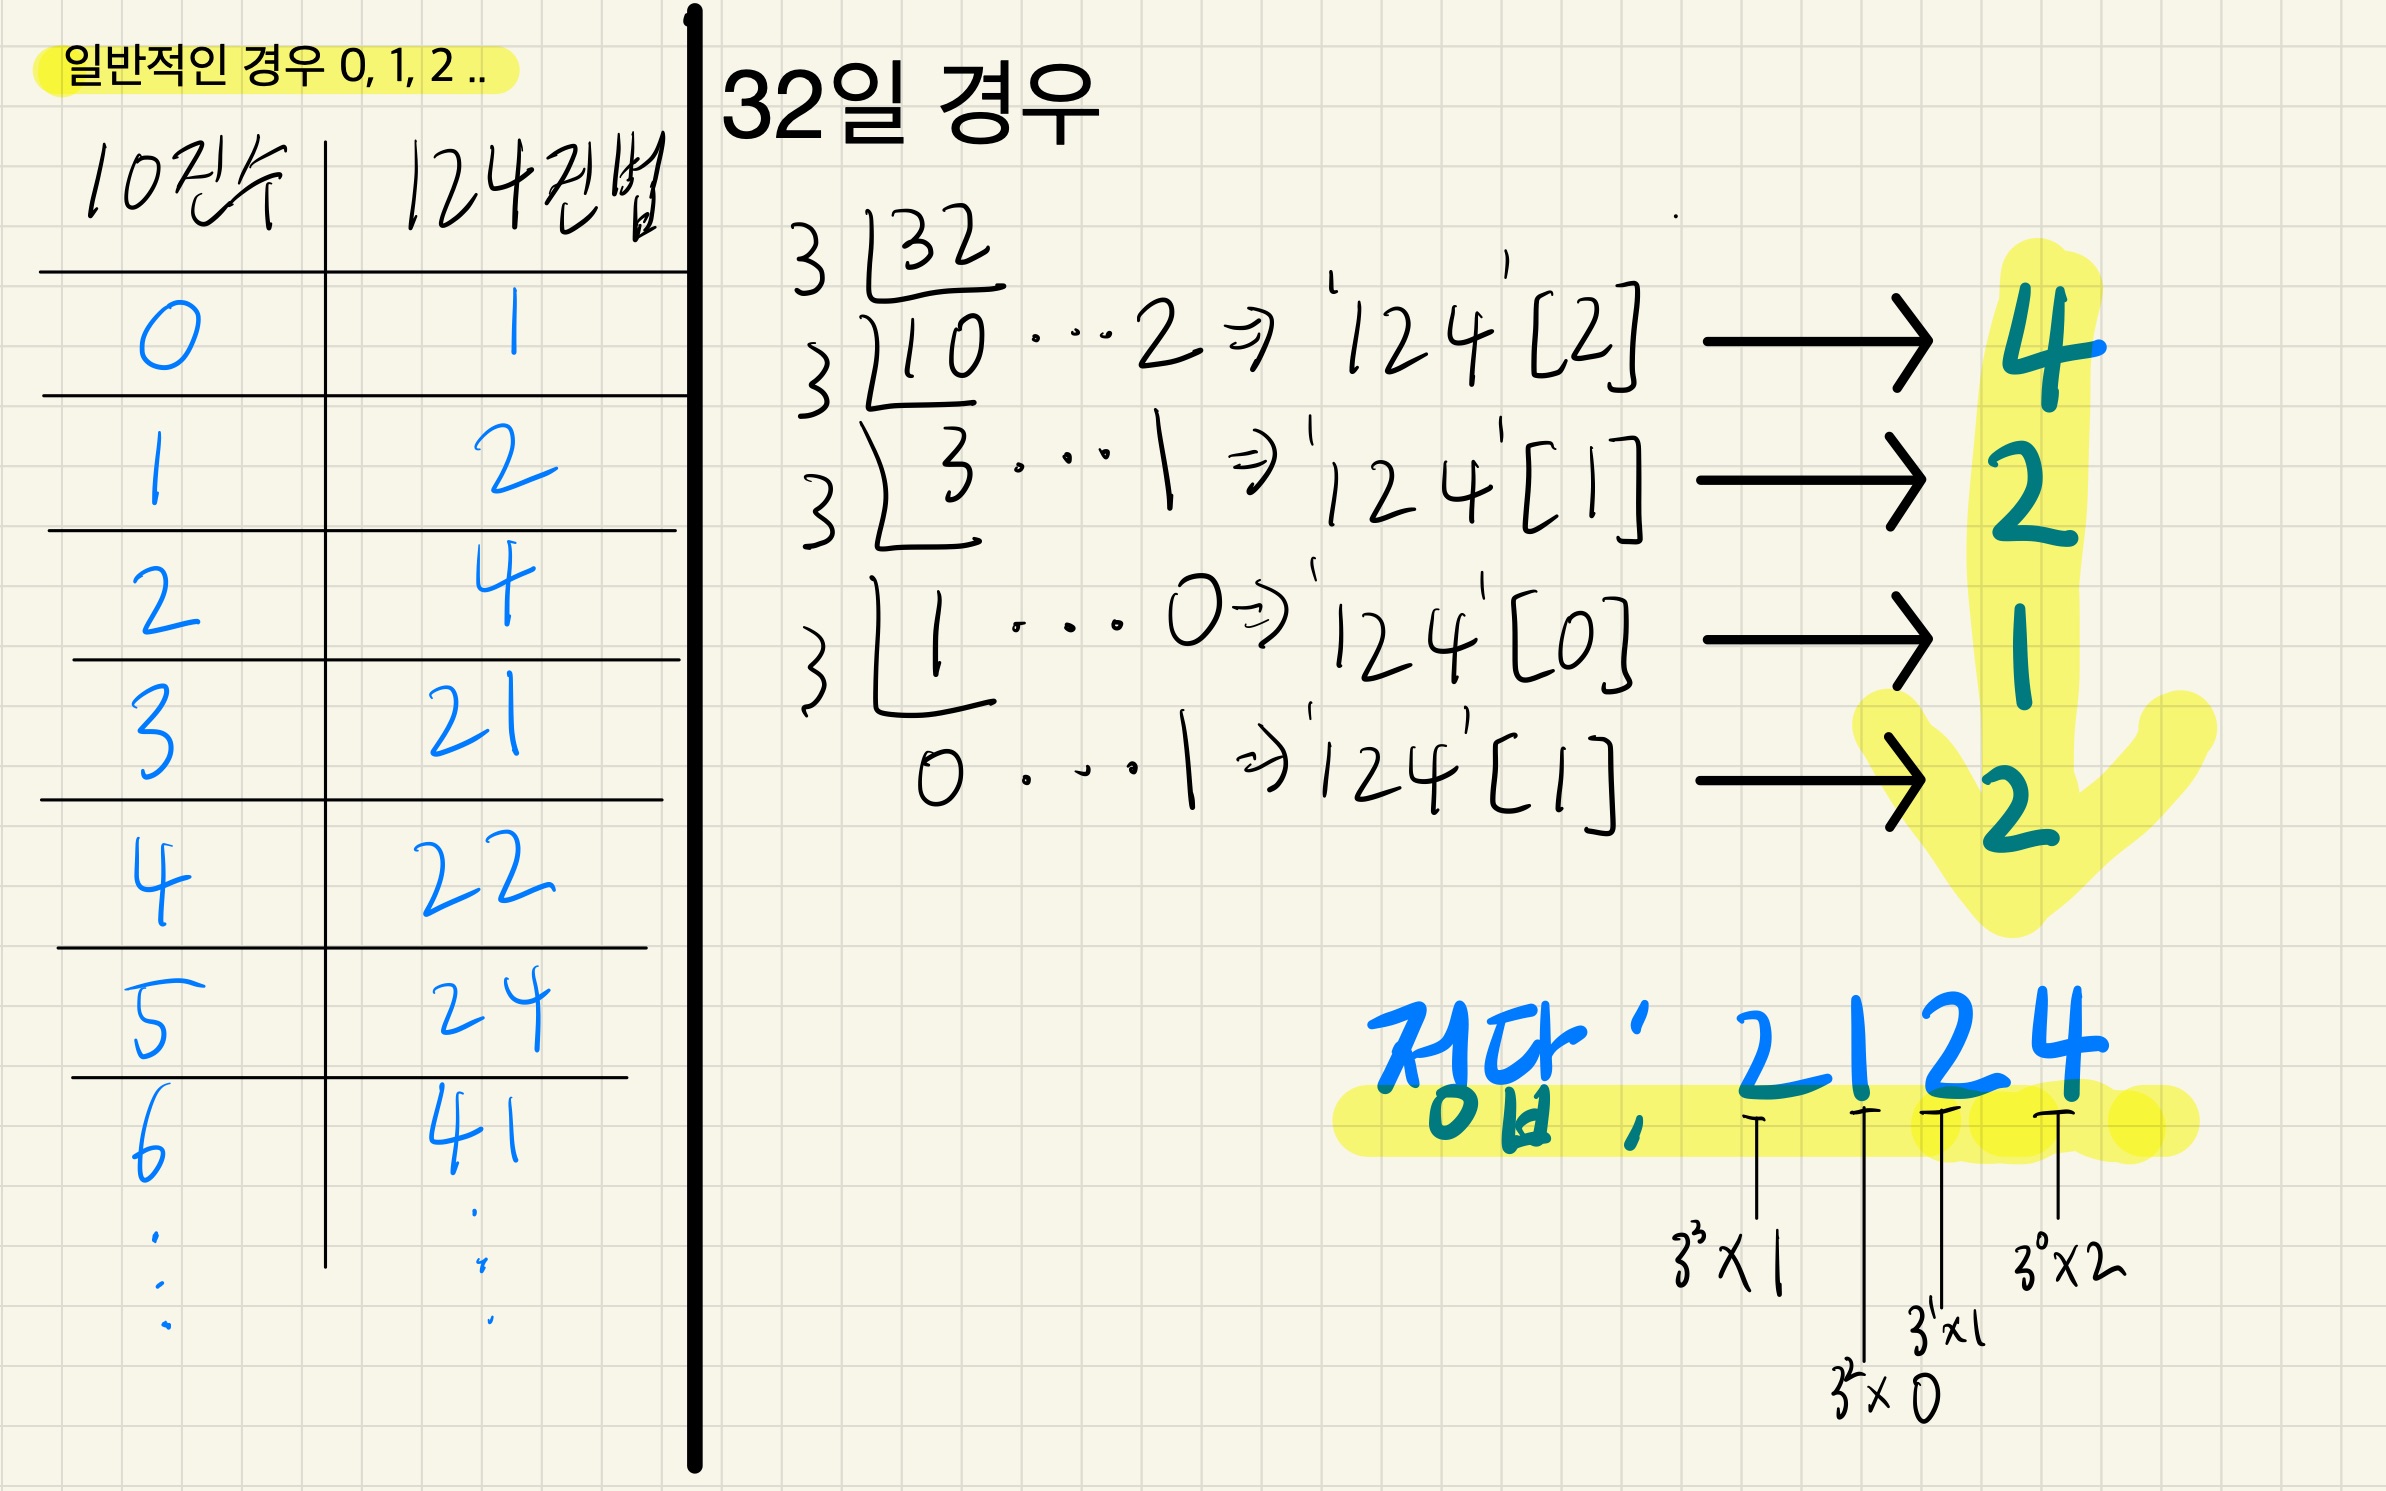 일반적인 경우 0, 1, 2 ..
10진수 124진법
0 1
1 2
2 4
3 21
4 22
5 24
6 41
32일 경우
3 32
3 10 ... 2 ⇒ '124'[2] → 4
3 3 ... 1 ⇒ '124'[1] → 2
3 1 ... 0 ⇒ '124'[0] → 1
0 ... 1 ⇒ '124'[1] → 2
정답 : 2124
3³×1
3²×0
3¹×1
3⁰×2